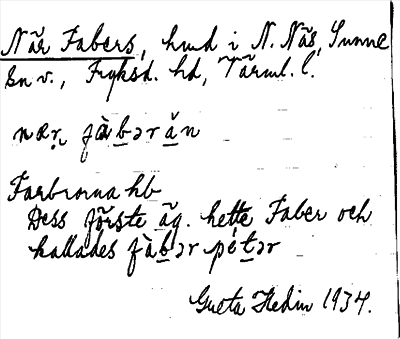 När Fabers, hmd i N. Näs, Sunne
sn v., Fryksd. hd, Värml. l.
næṛ fàb̲ərä̲n
Farbrorna hb
Dess förste äg. hette Faber och
kallades fàb̲ər pét̲ər
Greta Hedin 1934.